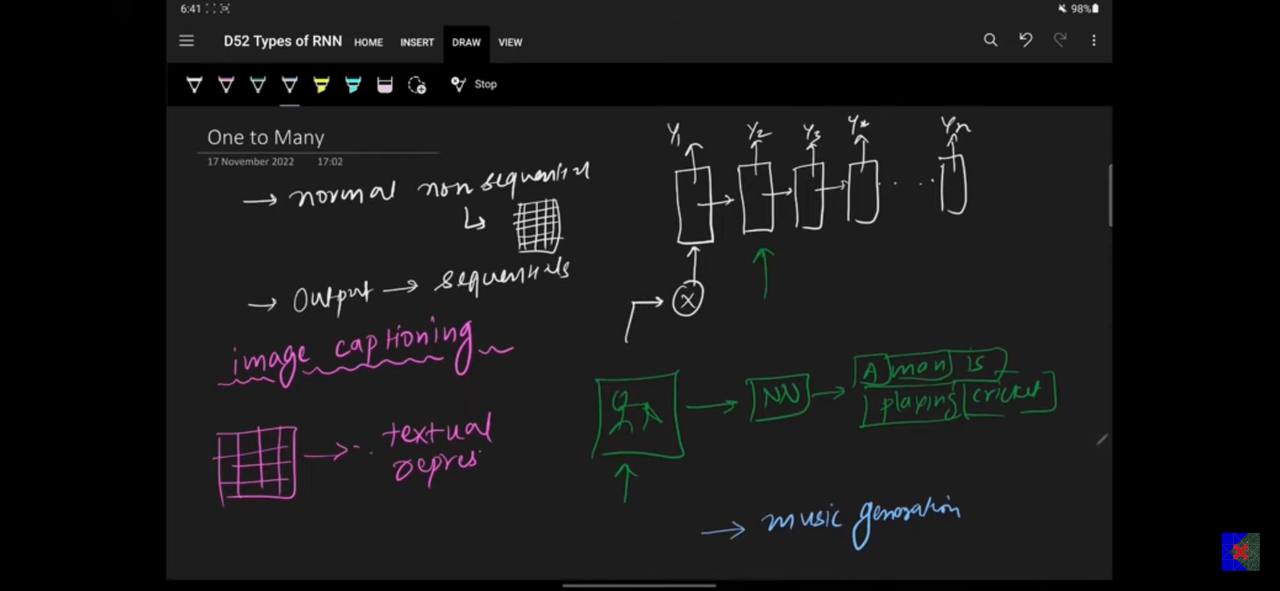 6:41
98%
D52 Types of RNN HOME INSERT DRAW VIEW
Stop
One to Many
17 November 2022 17:02
→ normal non sequential
→ Output → sequentials
image captioning
→ textual
repres
Y1 Y2 Y3 Y4 Yn
X
NN
A man is
playing cricket
→ music generation